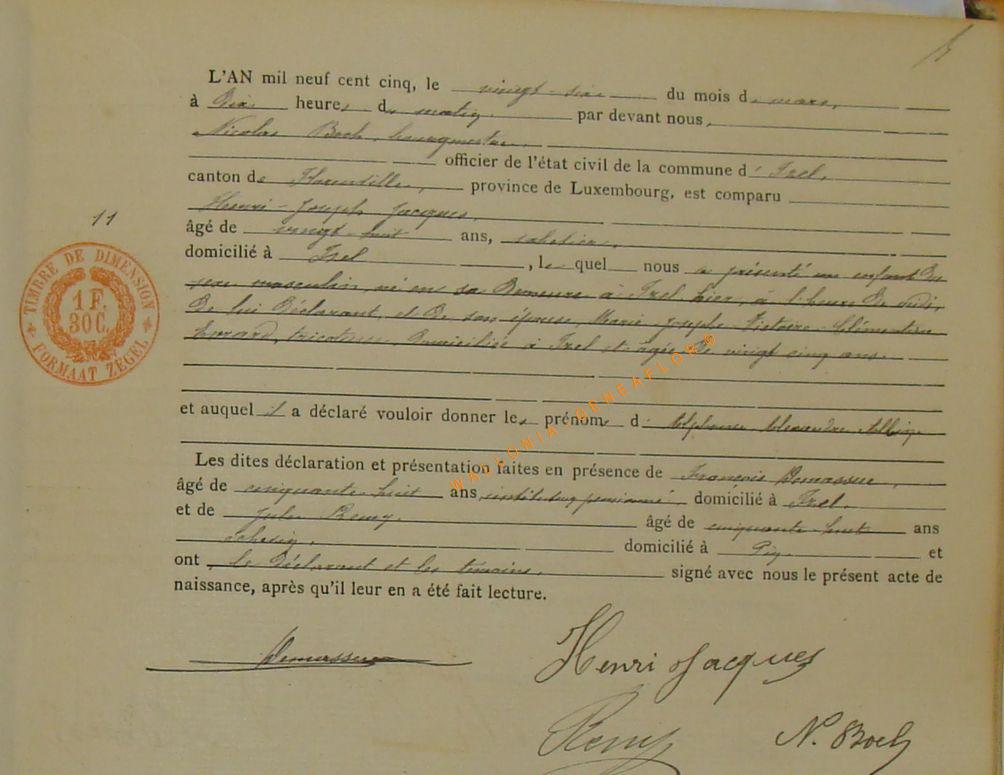 L'AN mil neuf cent cinq, le vingt-six du mois de mars,
à Dix heures du matin par devant nous,
Nicolas Boch, bourgmestre,
officier de l'état civil de la commune d' Izel,
canton de Florenville, province de Luxembourg, est comparu
Henri-Joseph Jacques,
11
âgé de vingt-huit ans, sabotier,
domicilié à Izel, lequel nous a présenté un enfant du
sexe masculin, né en sa demeure à Izel hier, à l'heure de midi,
de lui déclarant, et de son épouse, Marie-Josephe-Victoire-Clémentine
Evrard, tricoteuse, domiciliée à Izel et âgée de vingt cinq ans.
et auquel il a déclaré vouloir donner les prénoms d' Alphonse Alexandre Albin
Les dites déclaration et présentation faites en présence de François Demasseur,
âgé de cinquante-huit ans, instituteur pensionné domicilié à Izel
et de Jules Remy, âgé de cinquante-huit ans
domicilié à Pin et
ont, le déclarant et les témoins, signé avec nous le présent acte de
naissance, après qu'il leur en a été fait lecture.
TIMBRE DE DIMENSION
1 F.
30 C.
FORMAAT ZEGEL
WALLONIA-GENEAFLOR®
Henri Jacques
Remy N. Boch